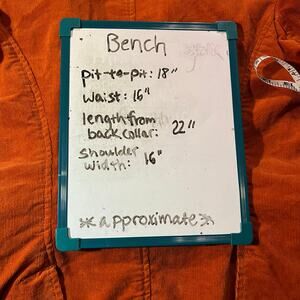 Bench
pit-to-pit: 18"
waist: 16"
length from
back collar: 22"
shoulder
width: 16"
*approximate*